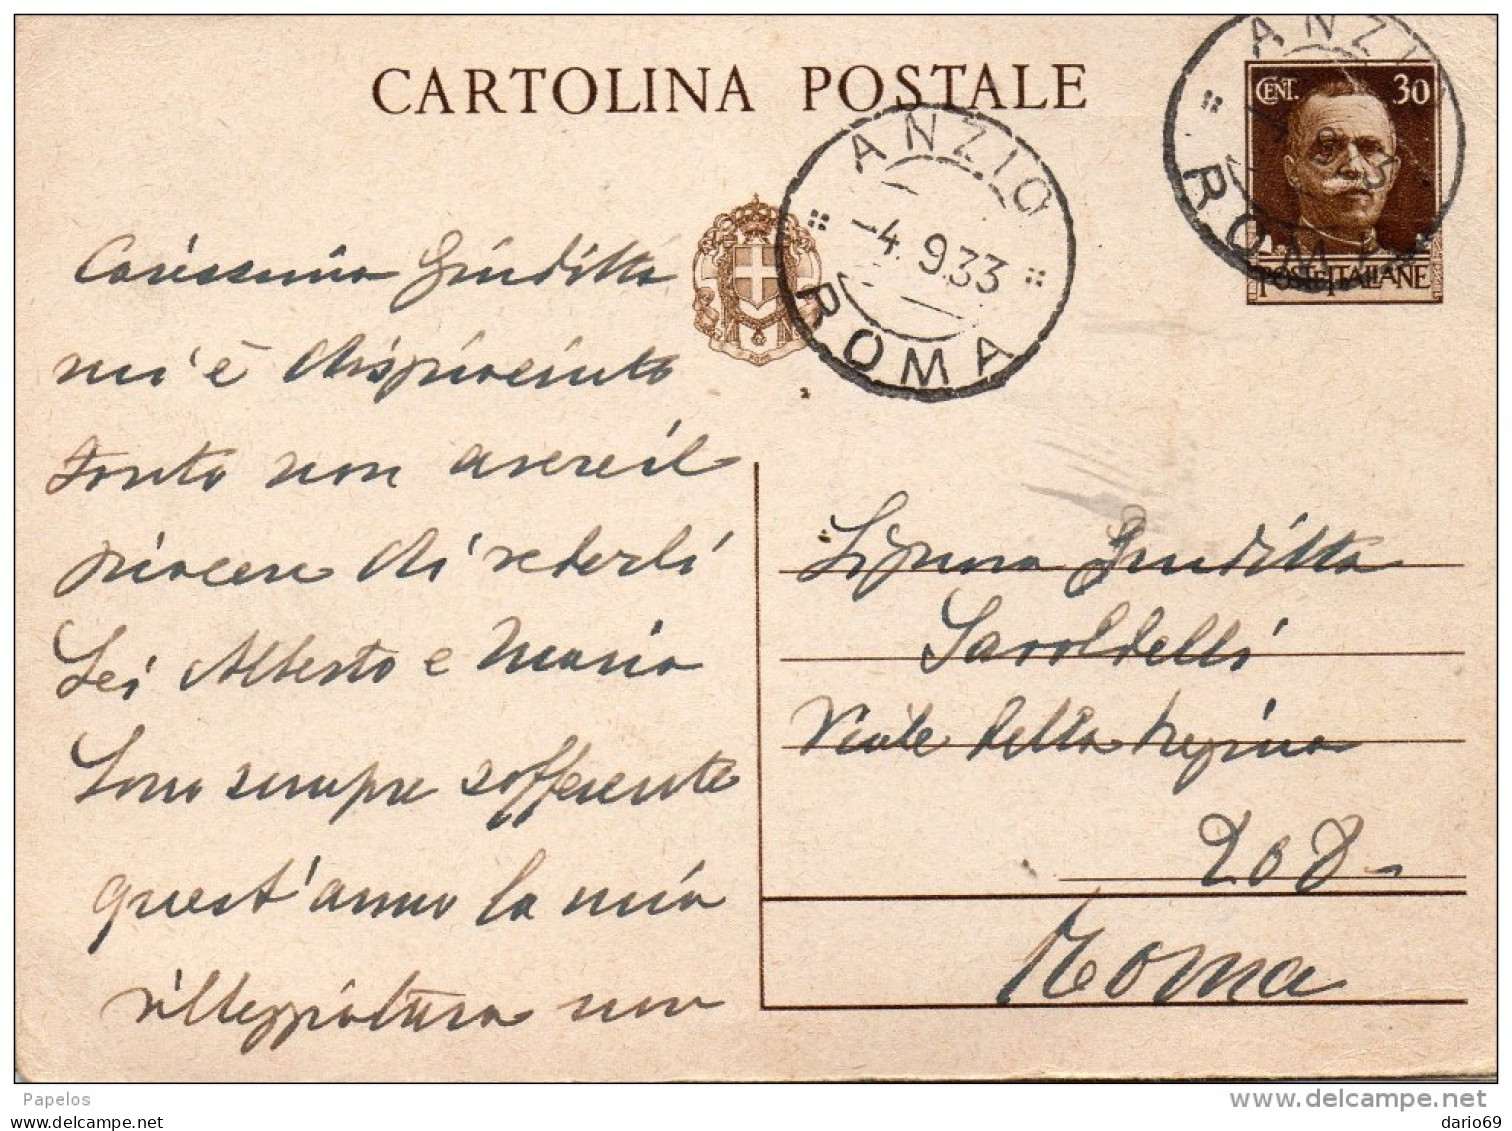 CARTOLINA POSTALE
CENT. 30
POSTE ITALIANE
ANZIO
ROMA
ANZIO
-4.9.33
ROMA
Carissima Giuditta
mi è dispiaciuto
tanto non avere il
piacere di vederli
Lei Alberto e Maria
Sono sempre sofferente
quest'anno la mia
villeggiatura non
Signora Giuditta
Saroldelli
Viale della Regina
208-
Roma
Papelos
www.delcampe.net
www.delcampe.net
dario69